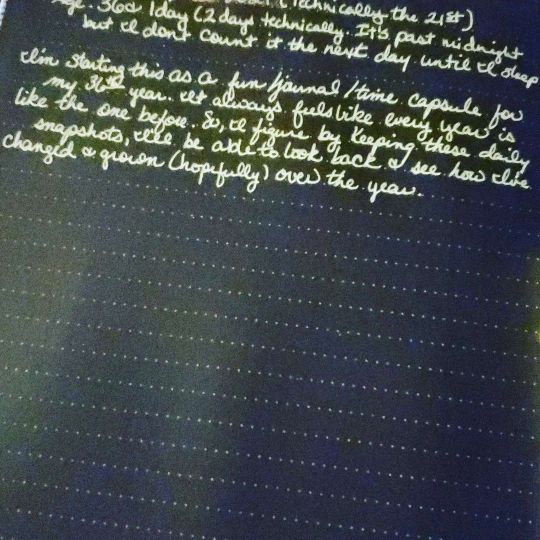 (Technically the 21st)
age. 36 & 1 day (2 days technically. It's past midnight
but I don't count it the next day until I sleep
I'm starting this as a fun/journal/time capsule for
my 36th year. It always feels like every year is
like the one before. So, I figure by keeping these daily
snapshots, I'll be able to look back & see how I've
changed & grown (hopefully) over the year.